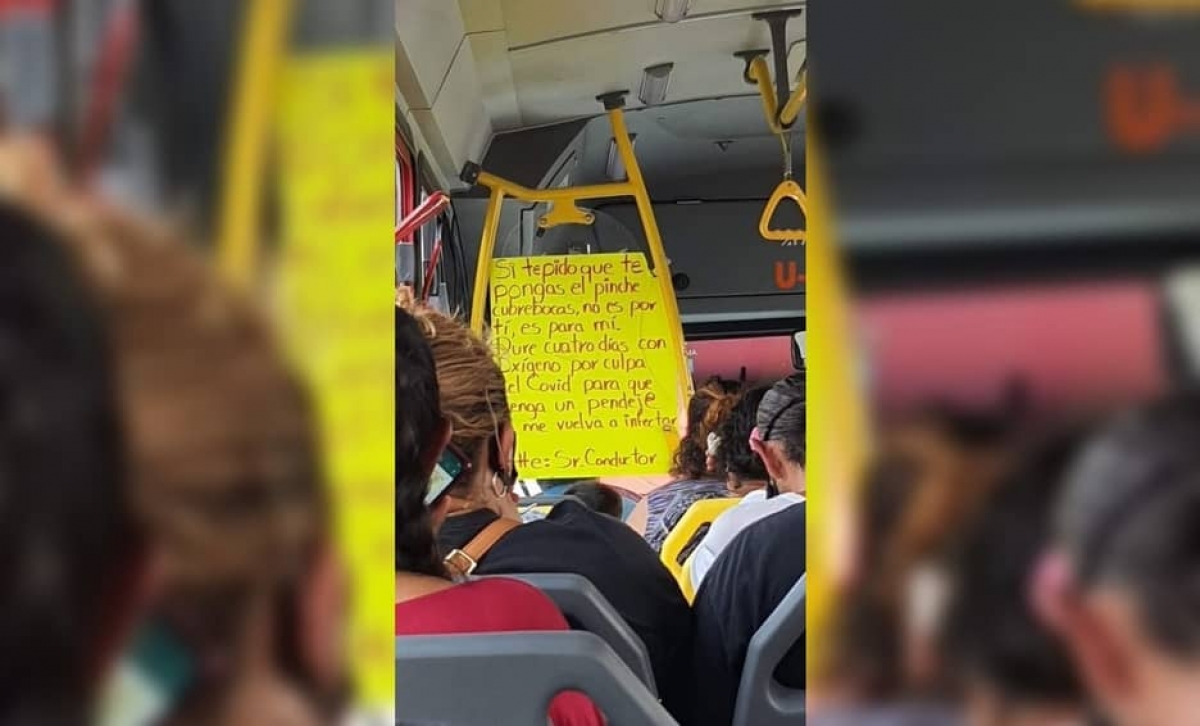 Si tepido que te
pongas el pinche
cubrebocas, no es por
tí, es para mí.
Dure cuatro dias con
Oxígeno por culpa
del Covid para que
venga un pendeje
me vuelva a infectar
Atte: Sr. Conductor
U-
U-